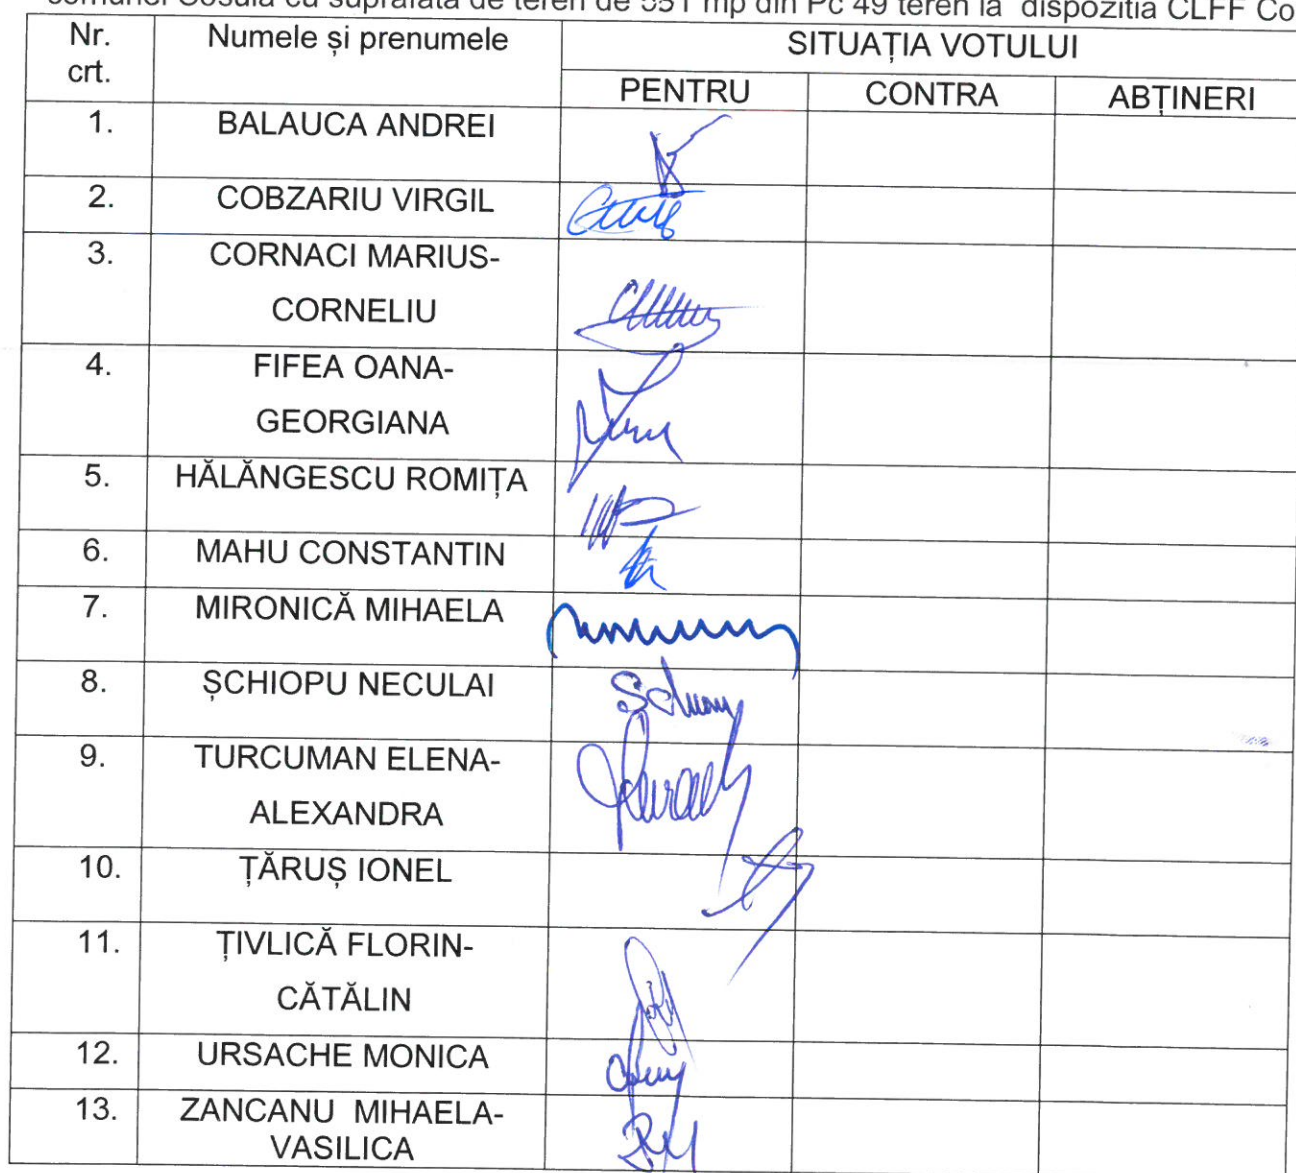 comunei Cosula cu suprafata de teren de 551 mp din Pc 49 teren la dispozitia CLFF Co
Nr. crt. Numele și prenumele SITUAȚIA VOTULUI
PENTRU CONTRA ABȚINERI
1. BALAUCA ANDREI
2. COBZARIU VIRGIL
3. CORNACI MARIUS-
CORNELIU
4. FIFEA OANA-
GEORGIANA
5. HĂLĂNGESCU ROMIȚA
6. MAHU CONSTANTIN
7. MIRONICĂ MIHAELA
8. ȘCHIOPU NECULAI
9. TURCUMAN ELENA-
ALEXANDRA
10. ȚĂRUȘ IONEL
11. ȚIVLICĂ FLORIN-
CĂTĂLIN
12. URSACHE MONICA
13. ZANCANU MIHAELA-
VASILICA